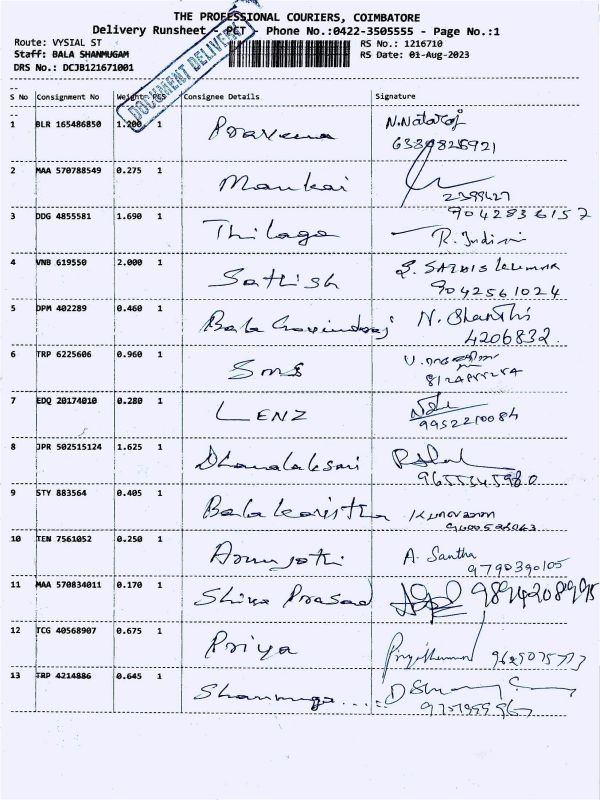 THE PROFESSIONAL COURIERS, COIMBATORE
Delivery Runsheet - PCT - Phone No.:0422-3505555 - Page No.:1
Route: VYSIAL ST RS No.: 1216710
Staff: BALA SHANMUGAM RS Date: 01-Aug-2023
DRS No.: DCJB121671001
DOCUMENT DELIVERY
S No Consignment No Weight PCS Consignee Details Signature
1 BLR 165486850 1.200 1 Praveena N.Nataraj
2 MAA 570788549 0.275 1 Mankai
2399427
3 DDG 4855581 1.690 1 Thilaga R. Indirani
9042836157
4 VNB 619550 2.000 1 Sathish S. SATHIS KUMAR
9042561024
5 DPM 402289 0.460 1 Bala Govindraj N. Shanthi
4206832
6 TRP 6225606 0.960 1 SMS
7 EDQ 20174010 0.280 1 LENZ
9952210084
8 JPR 502515124 1.625 1 Dhanalaksmi
9655345980
9 STY 883564 0.405 1 Bala
10 TEN 7561052 0.250 1 Arunjothi A. Santha
9790390105
11 MAA 570834011 0.170 1 Shiva Prasad
12 TCG 40568907 0.675 1 Priya
13 TRP 4214886 0.645 1 Shanmuga